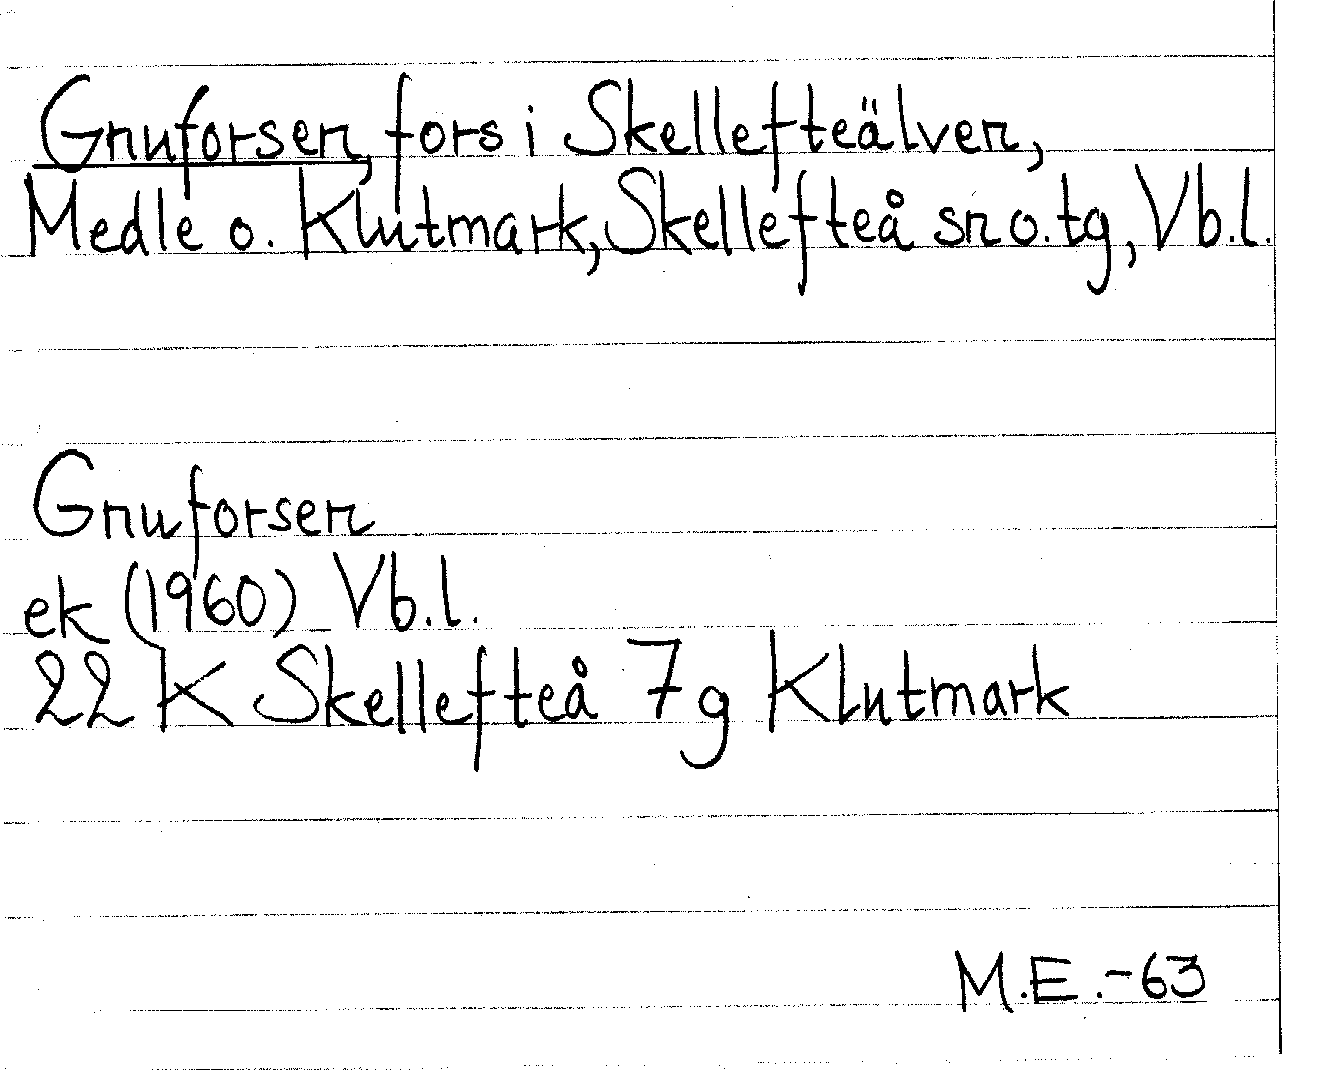 Gnuforsen, fors i Skellefteälven,
Medle o. Klutmark, Skellefteå sn o. tg, Vb.l.
Gnuforsen
ek (1960) Vb.l.
22 K Skellefteå 7g Klutmark
M.E.-63